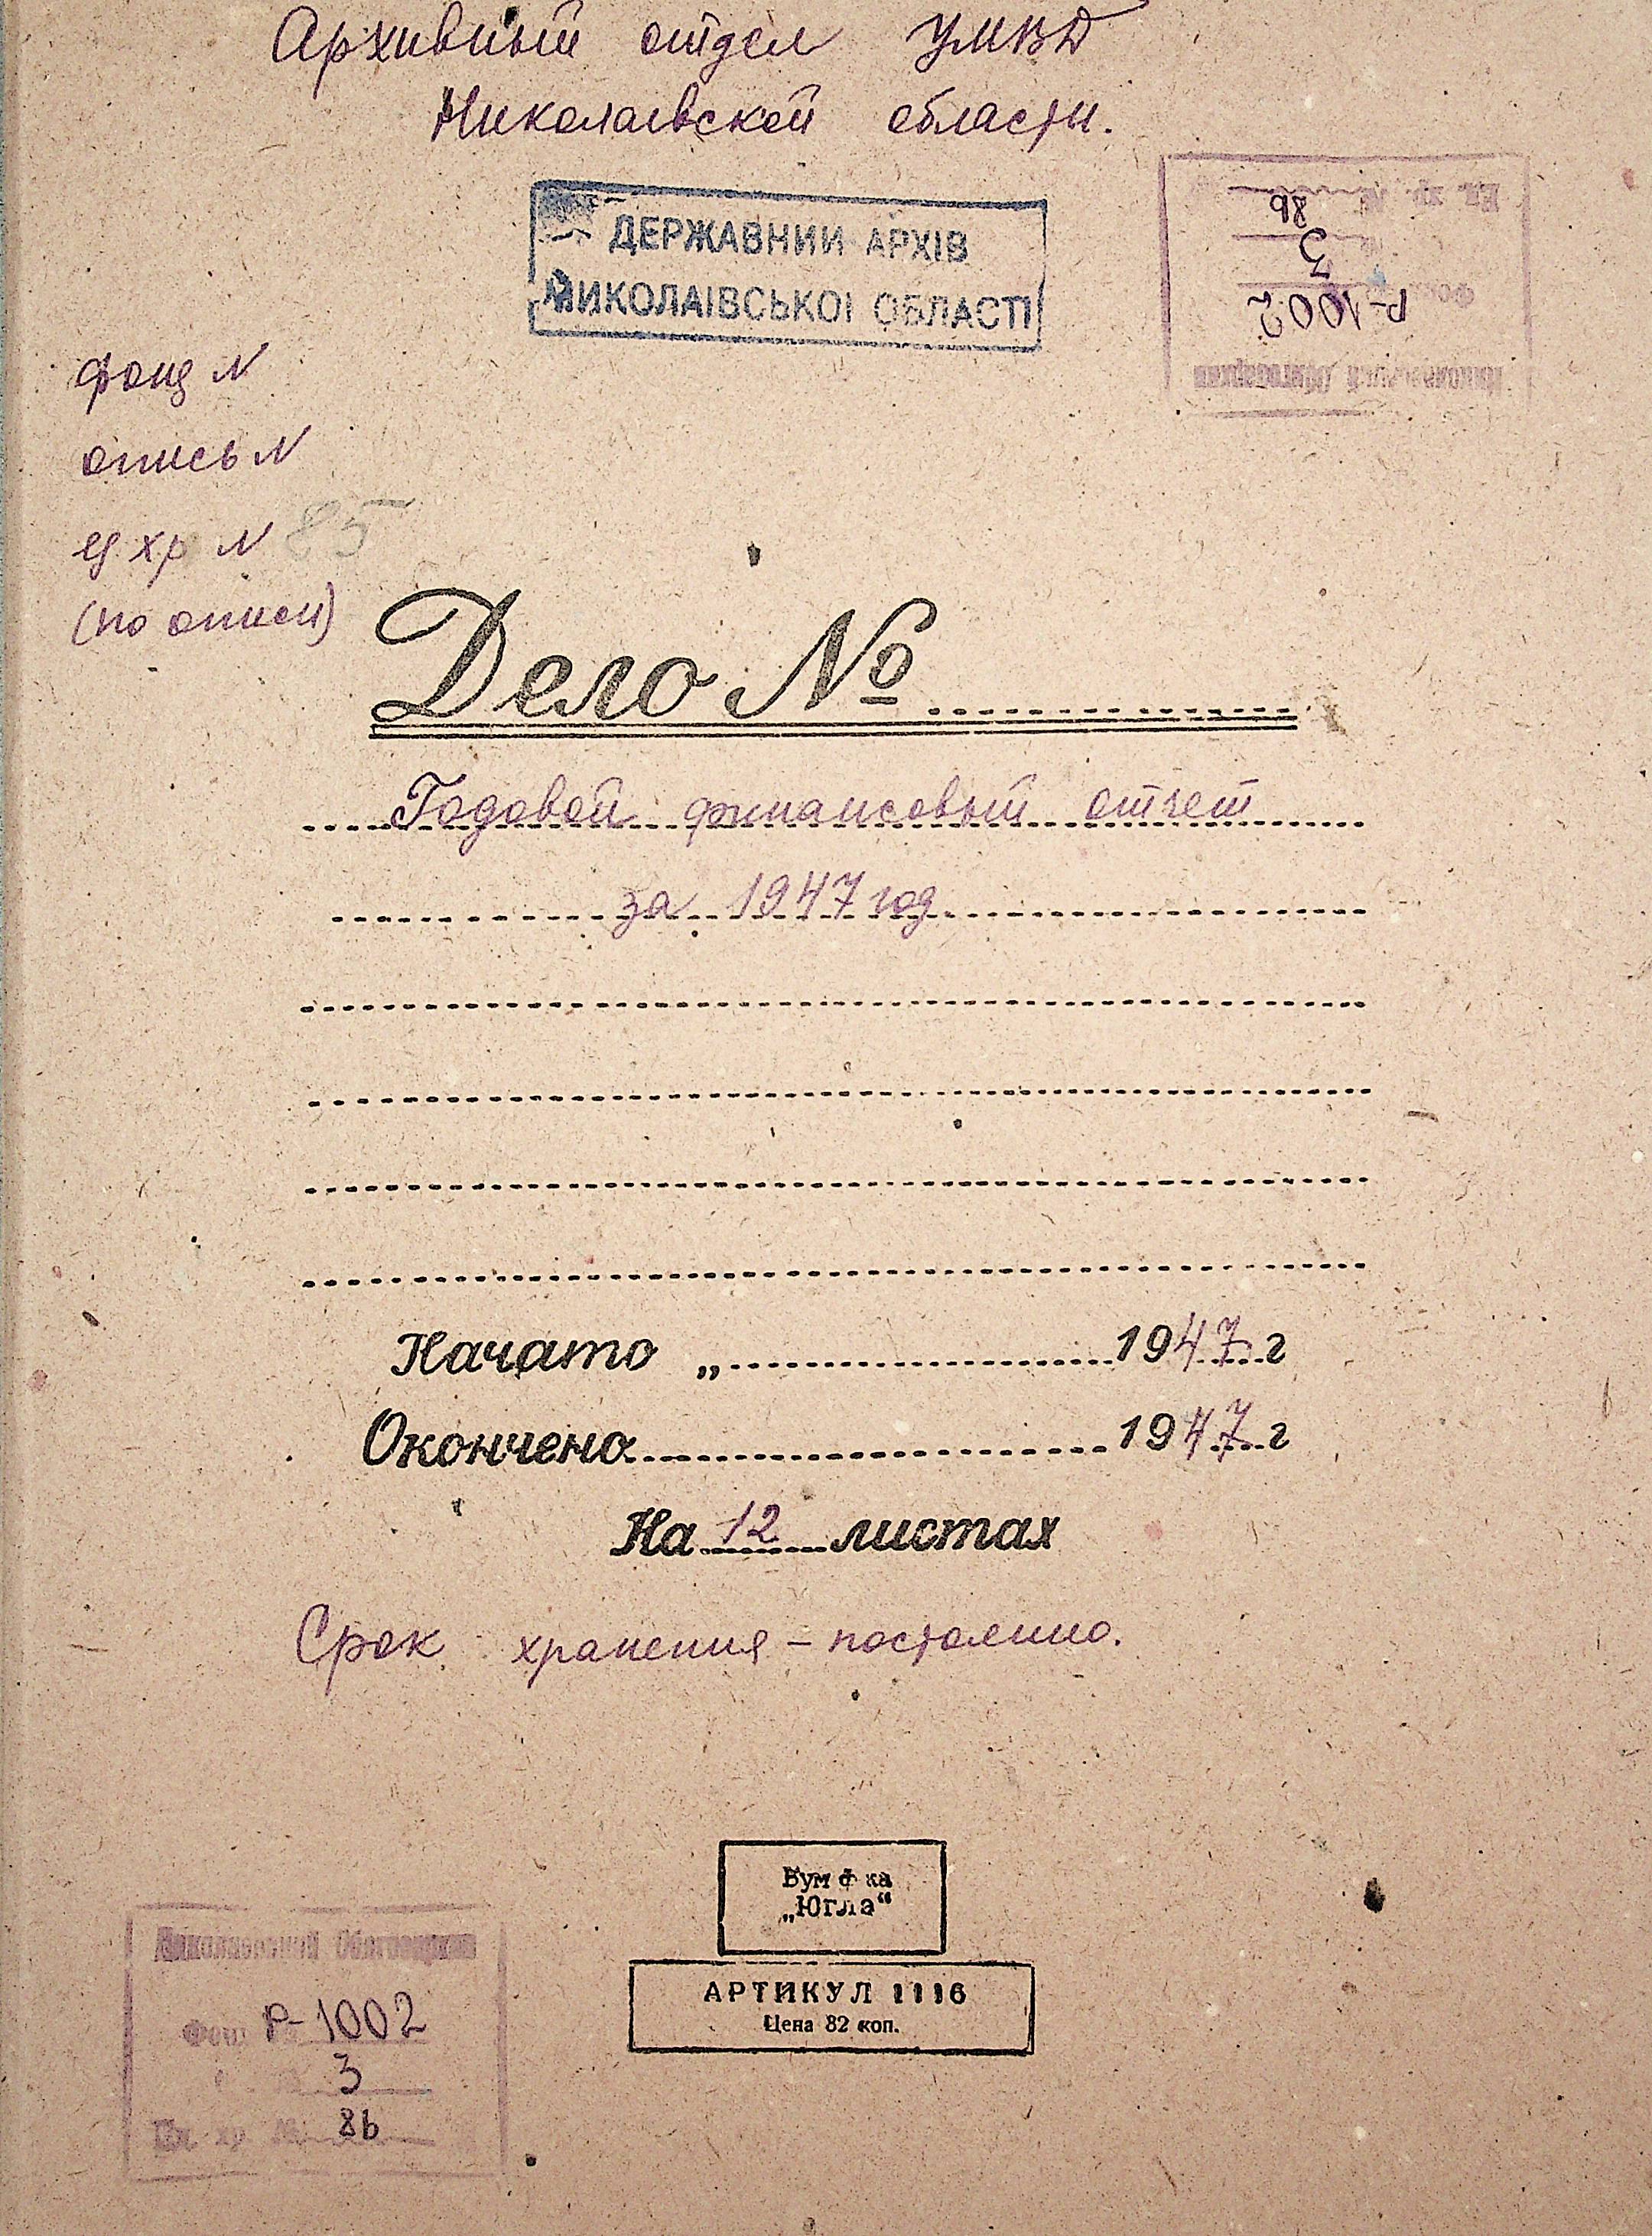 Архивный отдел УМВД
Николаевской области.
ДЕРЖАВНИЙ АРХІВ
МИКОЛАЇВСЬКОЇ ОБЛАСТІ
Николаевский Облгосархив
Фонд Р-1002
3
Ед. хр. № 86
фонд N
опись N
ед хр N 85
(по описи)
Дело №
Годовой финансовый отчет
за 1947 год.
Начато „ 1947 г
Окончено 1947 г
На 12 листах
Срок хранения – постоянно.
Бум ф-ка
„Югла“
АРТИКУЛ 1116
Цена 82 коп.
Николаевский Облгосархив
Фонд Р-1002
3
Ед. хр № 86